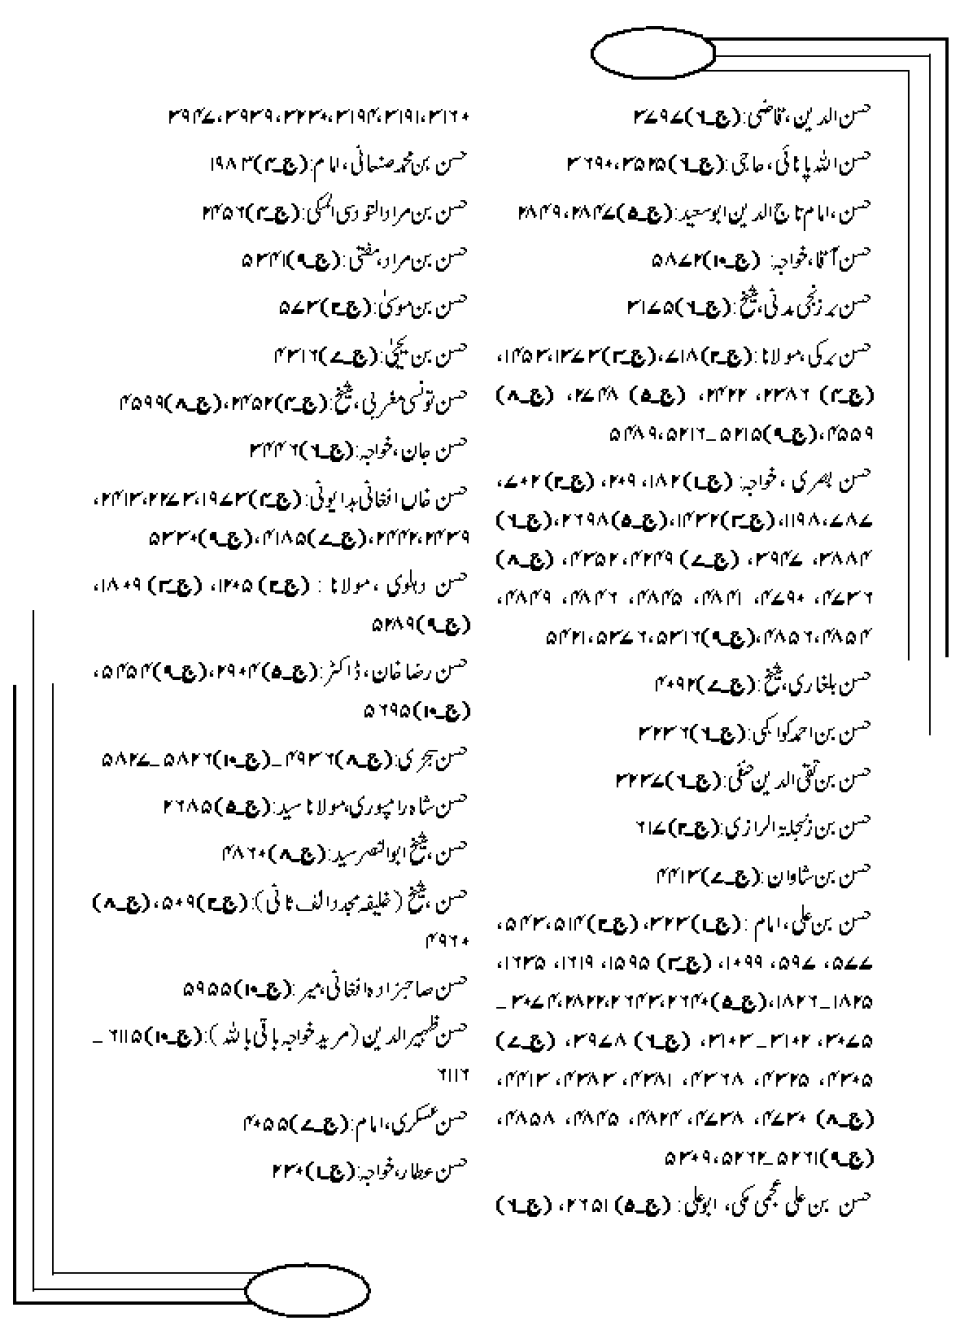 حسن الدین،قاضی:(ج_۶)۳۷۹۷
حسن اللہ پاٹائی، حاجی:(ج_۶)۳۵۲۵،۳۶۹۰
حسن،امام تاج الدین ابوسعید:(ج_۵)۲۸۴۷،۲۸۴۹
حسن آقا،خواجہ: (ج_۱۰)۵۸۷۲
حسن برزنجی مدنی،شیخ:(ج_۶)۳۱۷۵
حسن برکی،مولانا:(ج_۲)۷۱۸،(ج_۳)۱۳۷۳،۱۴۵۳،
(ج_۴) ۲۳۸۶، ۲۴۲۲، (ج_۵) ۲۷۴۸، (ج_۸)
۴۵۵۹،(ج_۹)۵۲۱۵_۵۲۱۶،۵۴۸۹
حسن بصری ، خواجہ: (ج_۱) ۱۸۲، ۲۰۹، (ج_۲) ۷۰۲،
۷۸۷، ۱۱۹۸،(ج_۳)۱۴۳۲،(ج_۵)۲۶۹۸،(ج_۶)
۳۸۸۴، ۳۹۴۷، (ج_۷) ۴۲۴۹، ۴۳۵۲، (ج_۸)
۴۷۳۶، ۴۷۹۰، ۴۸۴۱، ۴۸۴۵، ۴۸۴۶، ۴۸۴۹،
۴۸۵۴،۴۸۵۶،(ج_۹)۵۳۱۶،۵۳۷۶،۵۴۲۱
حسن بلغاری،شیخ:(ج_۷)۴۰۹۲
حسن بن احمد کواکبی:(ج_۶)۳۲۳۶
حسن بن تقی الدین حنفی:(ج_۶)۳۲۳۷
حسن بن زنجلیۃ الرازی:(ج_۲)۶۱۷
حسن بن شاوان:(ج_۷)۴۴۱۳
حسن بن علی،امام :(ج_۱)۳۲۳،(ج_۲)۵۱۴،۵۴۳،
۵۷۷، ۵۹۷، ۱۰۹۹، (ج_۳) ۱۵۹۵، ۱۶۱۹، ۱۶۳۵،
۱۸۲۵_۱۸۲۶،(ج_۵)۲۶۴۰،۲۶۴۳،۲۸۲۲،۳۰۷۴_
۳۰۷۵، ۳۱۰۲_۳۱۰۳، (ج_۶) ۳۹۷۸، (ج_۷)
۴۳۰۵، ۴۳۲۵، ۴۳۶۸، ۴۳۸۱، ۴۳۸۳، ۴۴۱۳،
(ج_۸) ۴۷۳۰، ۴۷۳۸، ۴۸۲۴، ۴۸۴۵، ۴۸۵۸،
(ج_۹)۵۲۶۱_۵۲۶۲،۵۳۰۹
حسن بن علی عجمی مکی، ابوعلی: (ج_۵) ۲۶۵۱، (ج_۶)
۳۱۶۰،۳۱۹۱،۳۱۹۴،۳۲۳۰،۳۹۳۹،۳۹۴۷
حسن بن محمد صنعانی،امام:(ج_۴)۱۹۸۳
حسن بن مراد التودسی المکی:(ج_۴)۲۴۵۶
حسن بن مراد،مفتی:(ج_۹)۵۳۴۱
حسن بن موسیٰ:(ج_۲)۵۷۳
حسن بن یحییٰ:(ج_۷)۴۳۱۶
حسن تونسی مغربی،شیخ:(ج_۴)۲۴۵۲،(ج_۸)۴۵۹۹
حسن جان،خواجہ:(ج_۶)۳۴۴۶
حسن خاں افغانی بدایونی:(ج_۴)۱۹۷۳،۲۲۷۳،۲۴۱۳،
۲۴۳۹،۲۴۴۲،(ج_۷)۴۱۸۵،(ج_۹)۵۳۳۰
حسن دہلوی ،مولانا : (ج_۲) ۱۲۰۵، (ج_۳) ۱۸۰۹،
(ج_۹)۵۲۸۹
حسن رضا خان،ڈاکٹر:(ج_۵)۲۹۰۴،(ج_۹)۵۴۵۴،
(ج_۱۰)۵۶۹۵
حسن سجزی:(ج_۸)۴۹۳۶_(ج_۱۰)۵۸۲۶_۵۸۲۷
حسن شاہ رامپوری،مولانا سید:(ج_۵)۲۶۸۵
حسن،شیخ ابوالنصر سید:(ج_۸)۴۸۶۰
حسن،شیخ (خلیفہ مجدد الف ثانی):(ج_۲)۵۰۹،(ج_۸)
۴۹۶۰
حسن صاحبزادہ افغانی،میر :(ج_۱۰)۵۹۵۵
حسن ظہیر الدین (مرید خواجہ باقی باللہ ):(ج_۱۰)۶۱۱۵_
۶۱۱۶
حسن عسکری،امام:(ج_۷)۴۰۵۵
حسن عطار،خواجہ:(ج_۱)۲۳۰